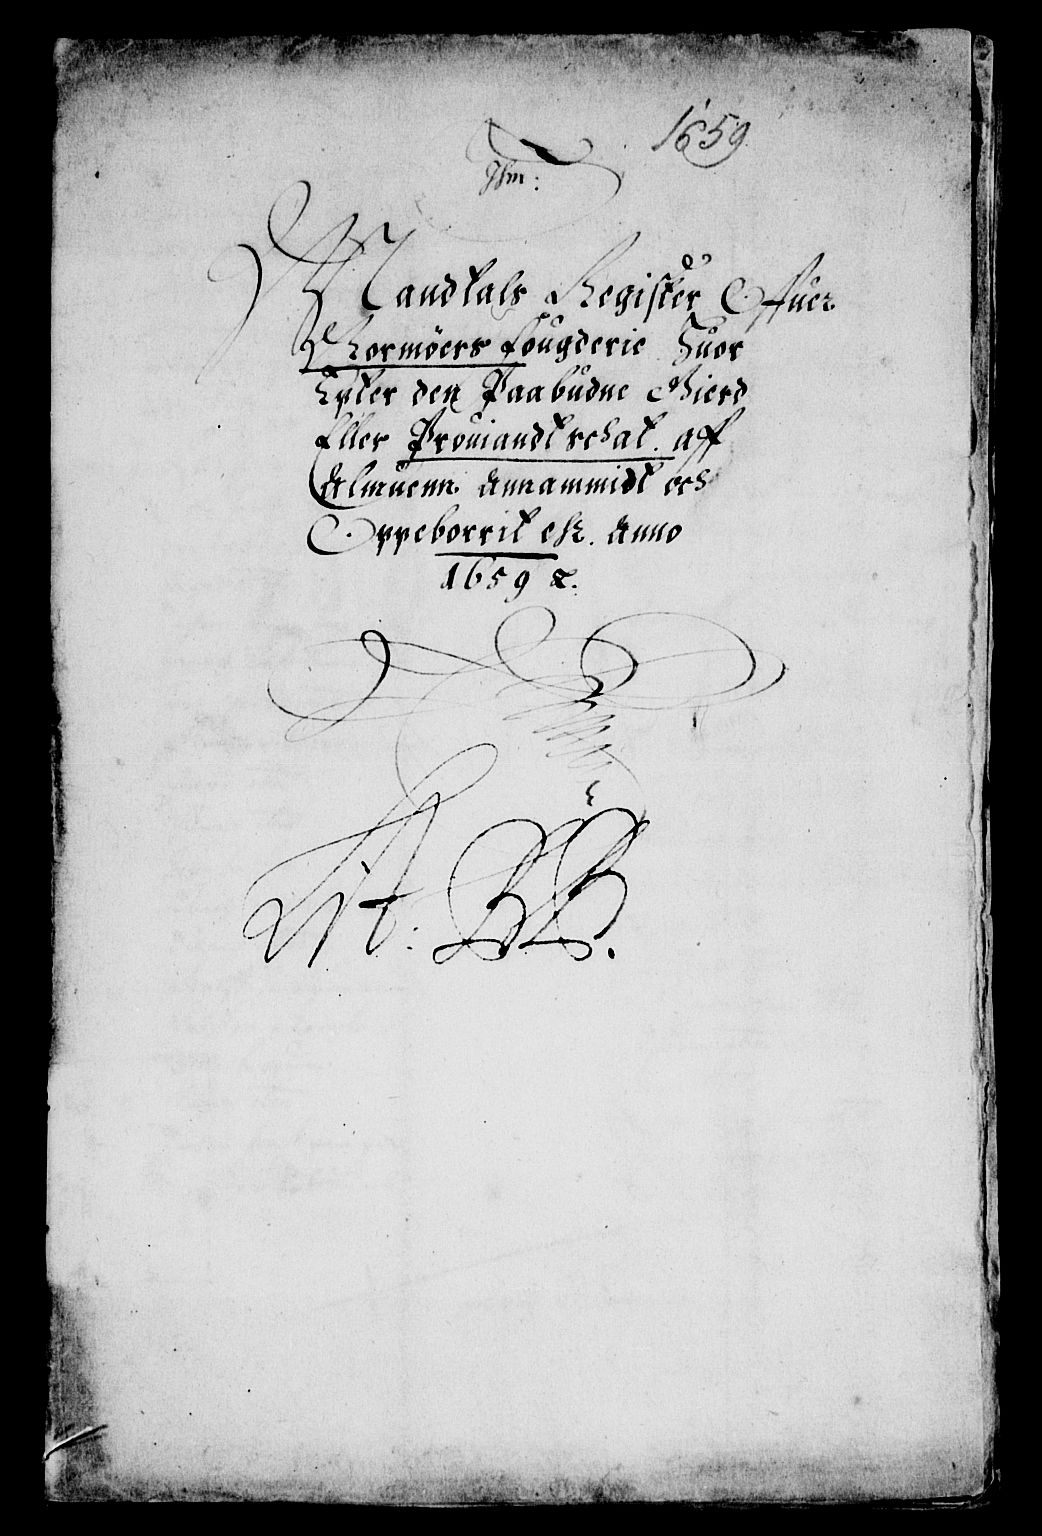 1659
Mandtals Register Offuer
Normöers fougderie Huor
Epter den Paabudne Gierd
Eller Prouiandt schat. aff
Almuenn Annammidt och
Oppeborrit ehr. Anno
1659 &.
Lit: BB.